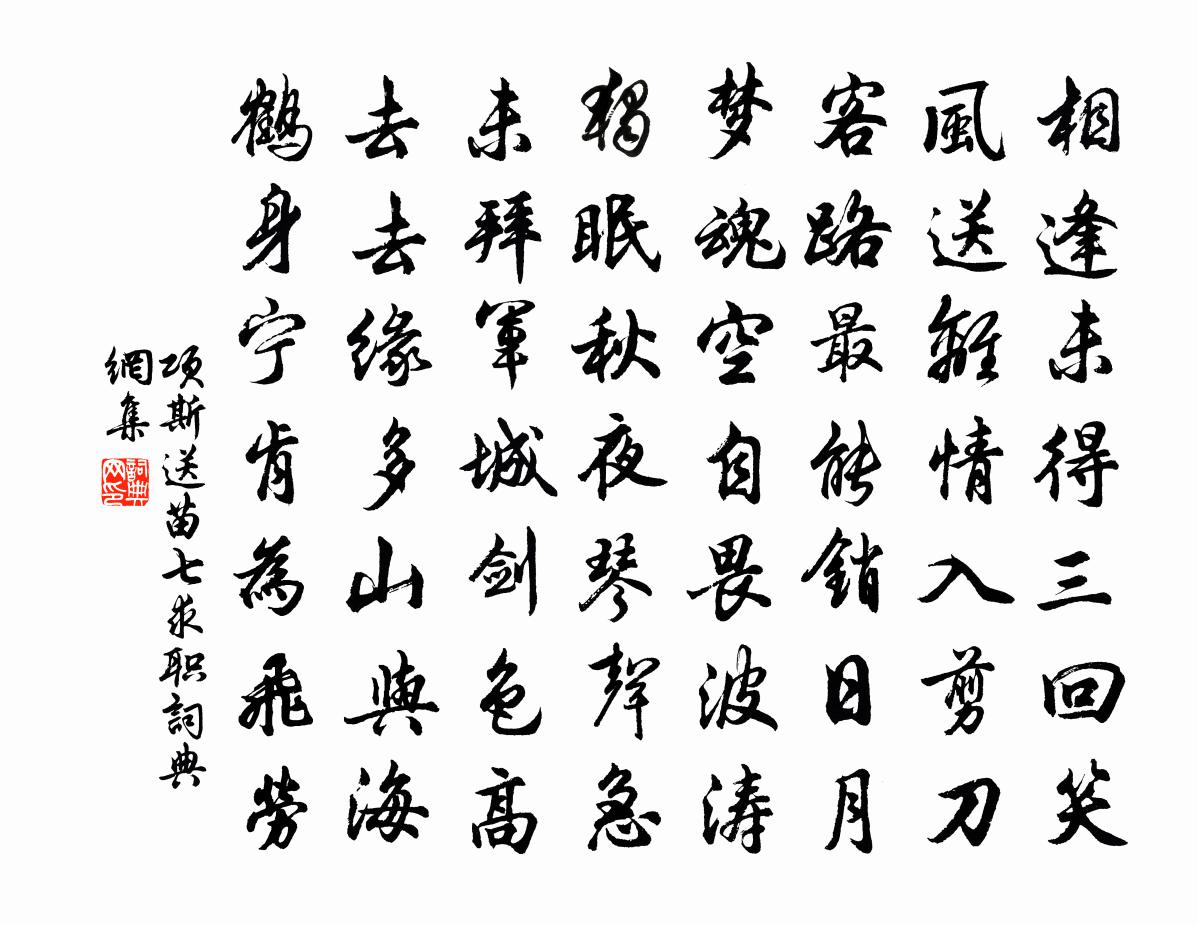 相逢未得三回笑
風送離情入剪刀
客路最能銷日月
梦魂空自畏波涛
獨眠秋夜琴聲急
未拜軍城剑色高
去去缘多山與海
鶴身宁肯為飛勞
项斯送苗七求职詞典
網集
詞典
网印